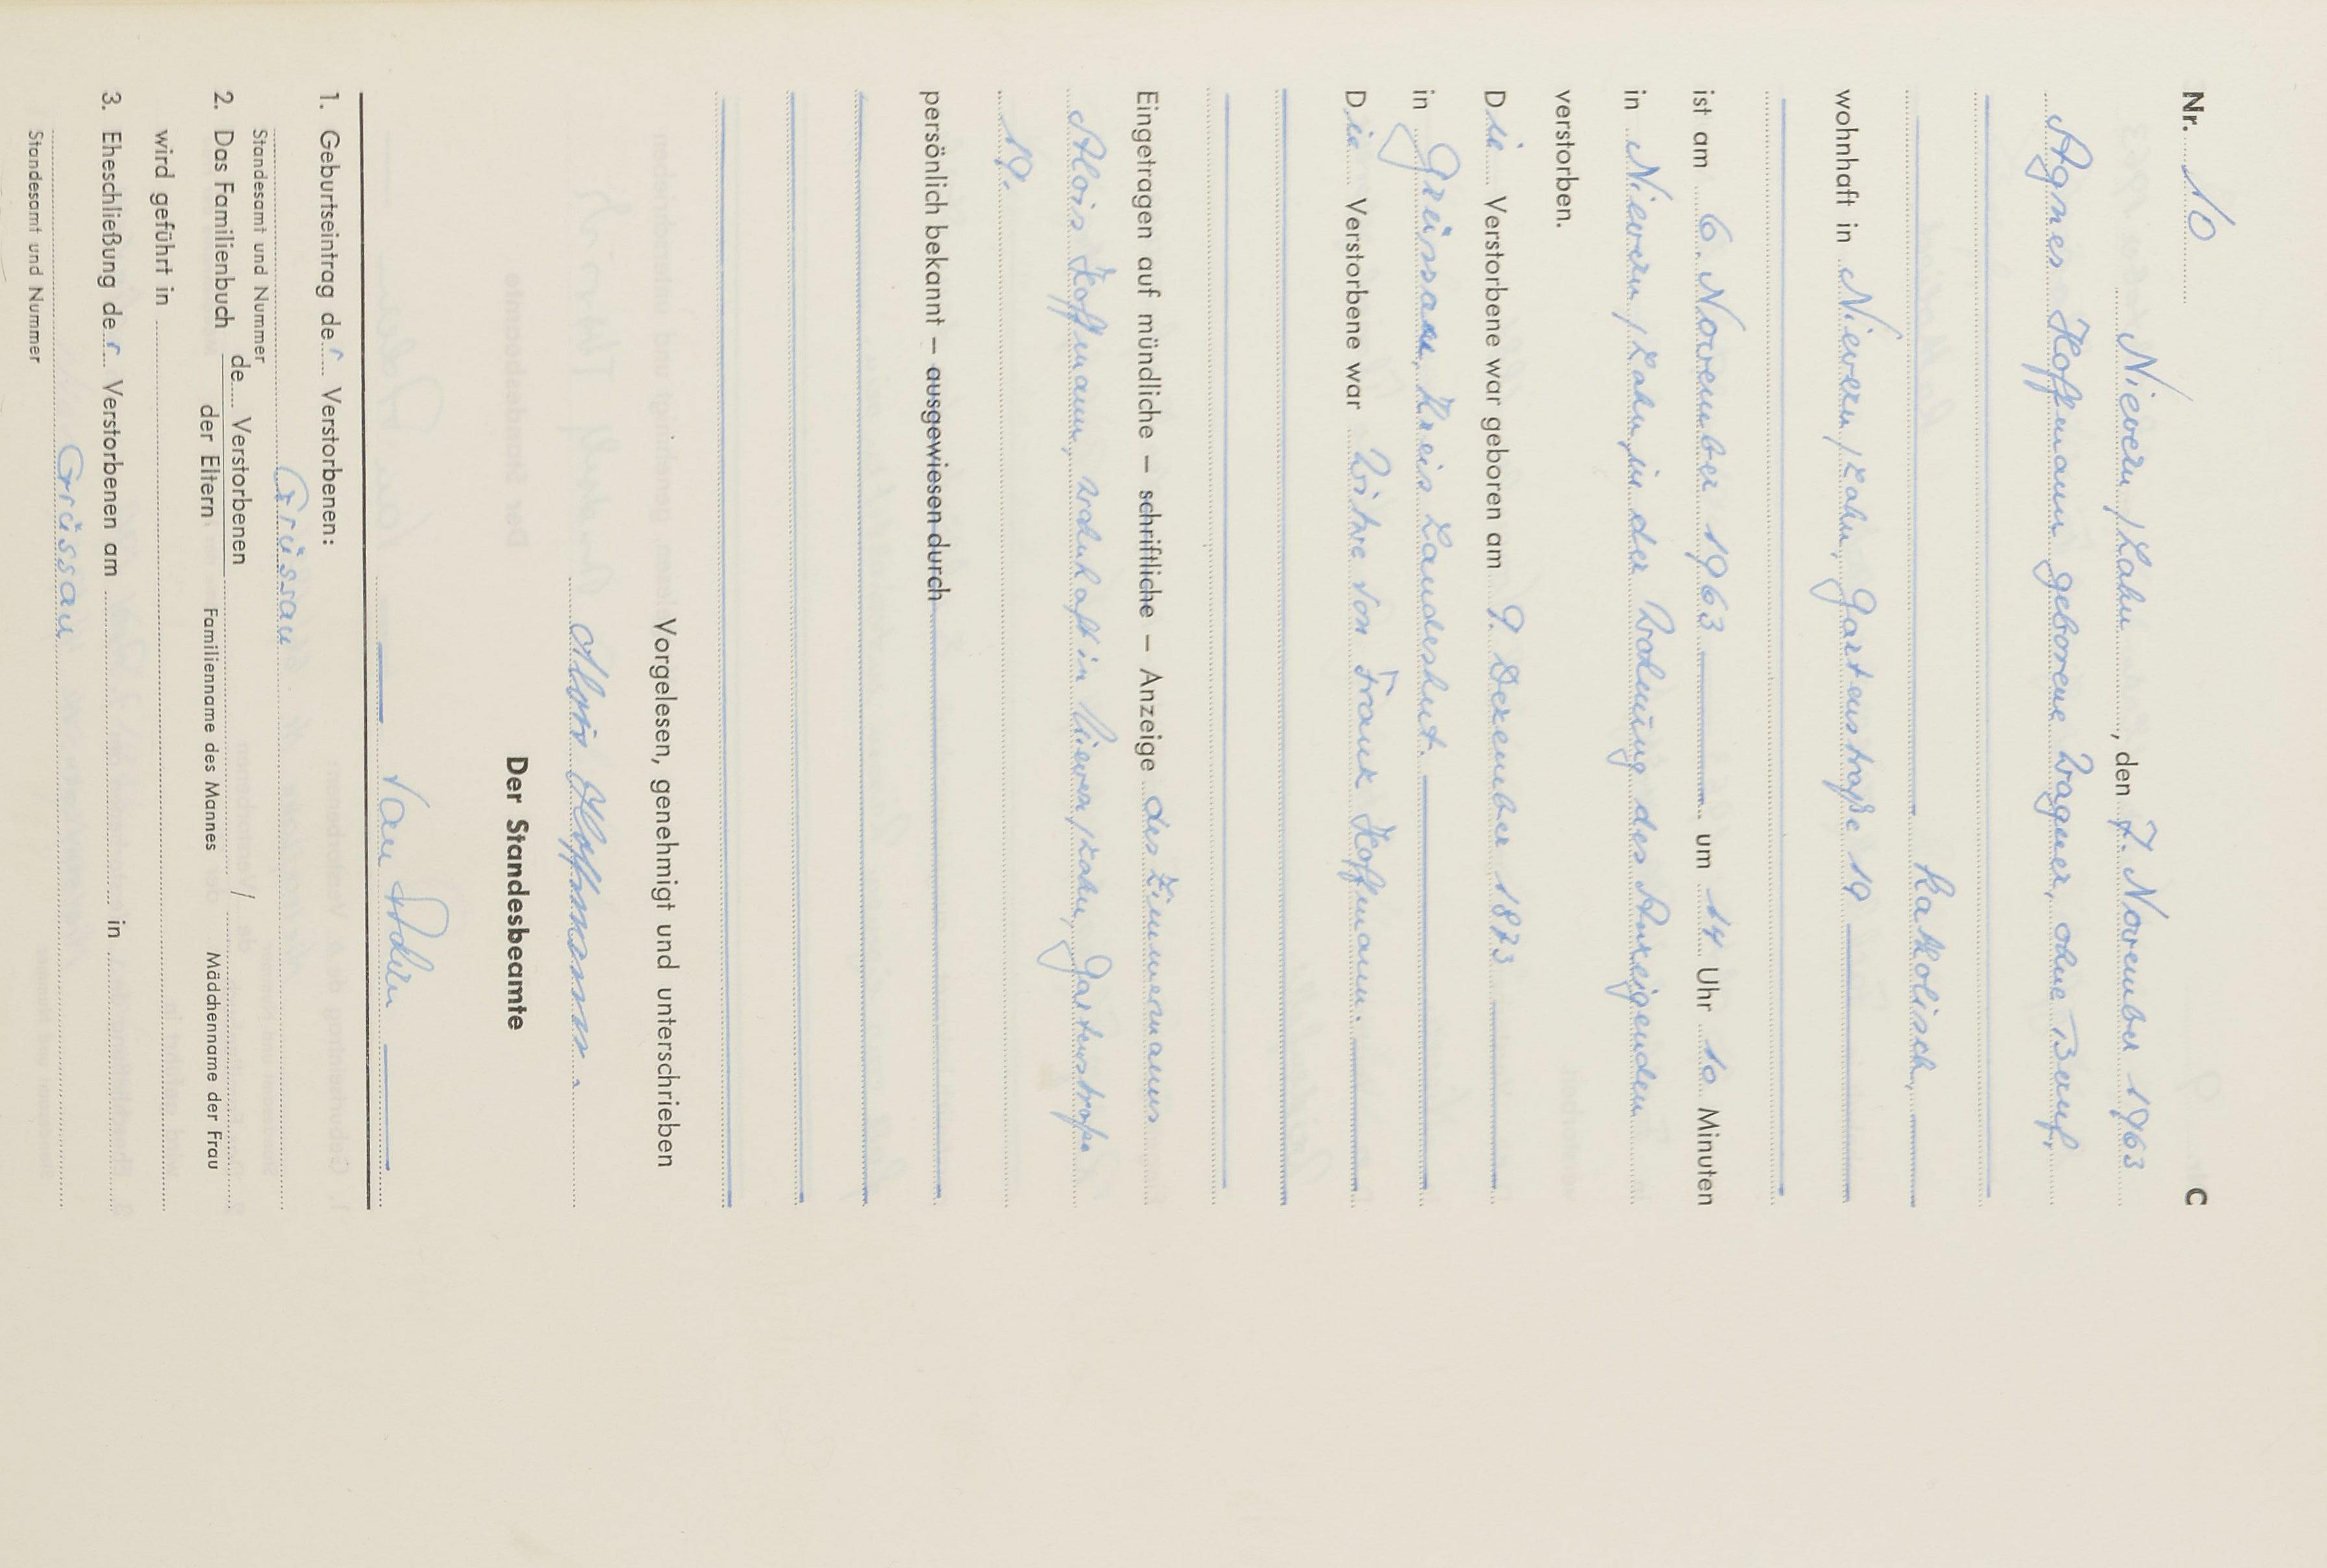 Nr. 10 C
Nievern/Lahn, den 7. November 1963
Agnes Hoffmann geborene Wagner, ohne Beruf,
katholisch,
wohnhaft in Nievern/Lahn, Gartenstraße 19
ist am 6. November 1963 um 14 Uhr 10 Minuten
in Nievern/Lahn, in der Wohnung des Anzeigenden
verstorben.
Die Verstorbene war geboren am 9. Dezember 1873
in Grüssau, Kreis Landeshut.
Die Verstorbene war Witwe von Frank Hoffmann.
Eingetragen auf mündliche – schriftliche – Anzeige des Zimmermanns
Alois Hoffmann, wohnhaft in Nievern/Lahn, Gartenstraße
19.
persönlich bekannt – ausgewiesen durch
Vorgelesen, genehmigt und unterschrieben
Alois Hoffmann.
Der Standesbeamte
1. Geburtseintrag der Verstorbenen:
Standesamt und Nummer Grüssau
2. Das Familienbuch de Verstorbenen /
der Eltern Familienname des Mannes Mädchenname der Frau
wird geführt in
3. Eheschließung der Verstorbenen am in
Standesamt und Nummer Grüssau